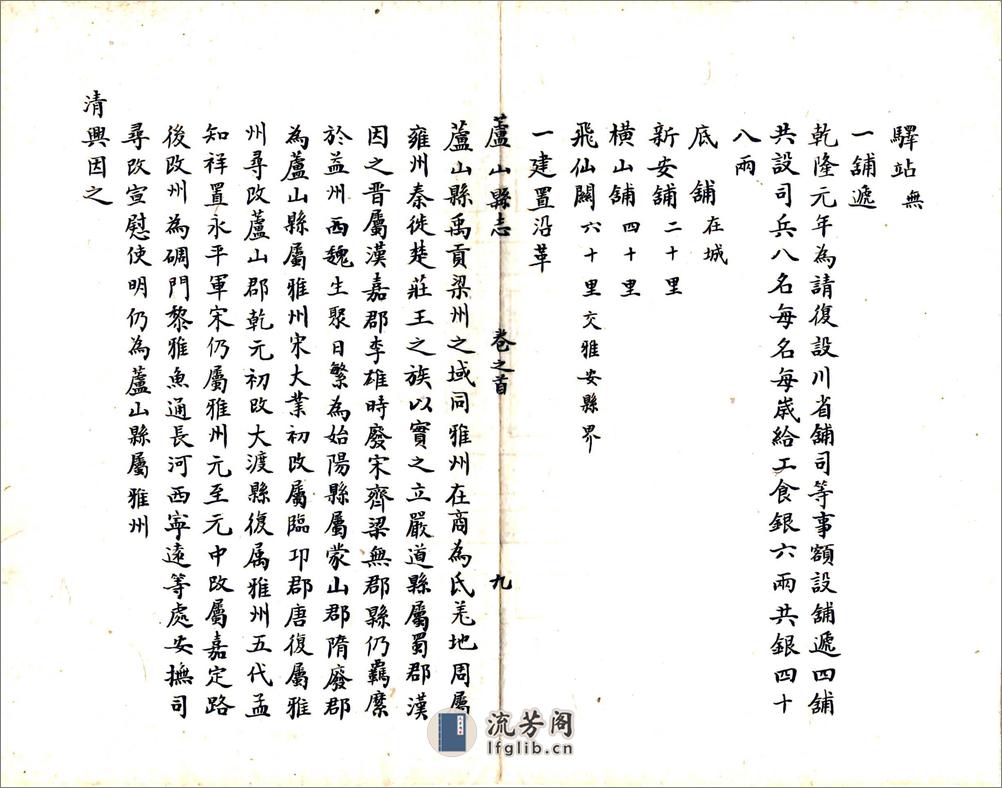 驛站無
一舖遞
乾隆元年為請復設川省舖司等事額設舖遞四舖
共設司兵八名每名每歲給工食銀六兩共銀四十
八兩
底　舖在城
新安舖二十里
橫山舖四十里
飛仙關六十里交雅安縣界
一建置沿革
蘆山縣志　卷之首　九
蘆山縣禹貢梁州之域同雅州在商為氐羌地周屬
雍州秦徙楚莊王之族以實之立嚴道縣屬蜀郡漢
因之晉屬漢嘉郡李雄時廢宋齊梁無郡縣仍羈縻
於益州西魏生聚日繁為始陽縣屬蒙山郡隋廢郡
為蘆山縣屬雅州宋大業初改屬臨邛郡唐復屬雅
州尋改蘆山郡乾元初改大渡縣復属雅州五代孟
知祥置永平軍宋仍屬雅州元至元中改屬嘉定路
後改州為碉門黎雅魚通長河西寧遠等處安撫司
尋改宣慰使明仍為蘆山縣屬雅州
清興因之
流芳阁
lfglib.cn